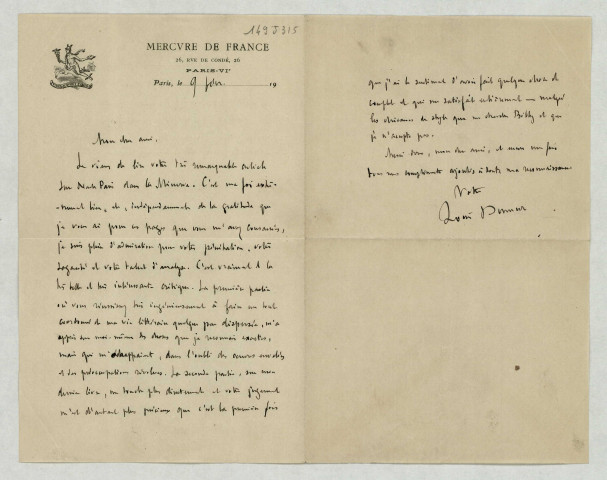 149 J 315
MERCVRE DE FRANCE
26, RVE DE CONDÉ, 26
PARIS-VIᵉ
Paris, le 9 févr. 19
Mon cher ami,
Je viens de lire votre très remarquable article
sur dans la Minerva. C'est ma foi extrê-
mement bien, et, indépendamment de la gratitude que
je vous ai pour ces pages que vous m'avez consacrées,
je suis plein d'admiration pour votre pénétration, votre
sagacité et votre talent d'analyse. C'est vraiment de la
très belle et très intéressante critique. La première partie
où vous réussissez très ingénieusement à faire un tout
coordonné de ma vie littéraire quelque peu dispersée, m'a
appris sur moi-même des choses que je reconnais exactes,
mais qui m'échappaient, dans l'oubli des œuvres
et des préoccupations. La seconde partie, sur mon
dernier livre, me touche plus directement et votre jugement
m'est d'autant plus précieux que c'est la première fois
que j'ai le sentiment d'avoir fait quelque chose de
complet et qui me satisfait entièrement — malgré
les chicanes de style que me cherche Billy et que
je n'accepte pas.
Merci donc, mon cher ami, et
tous mes compliments ajoutés à toute ma reconnaissance
Votre
Louis Dumur